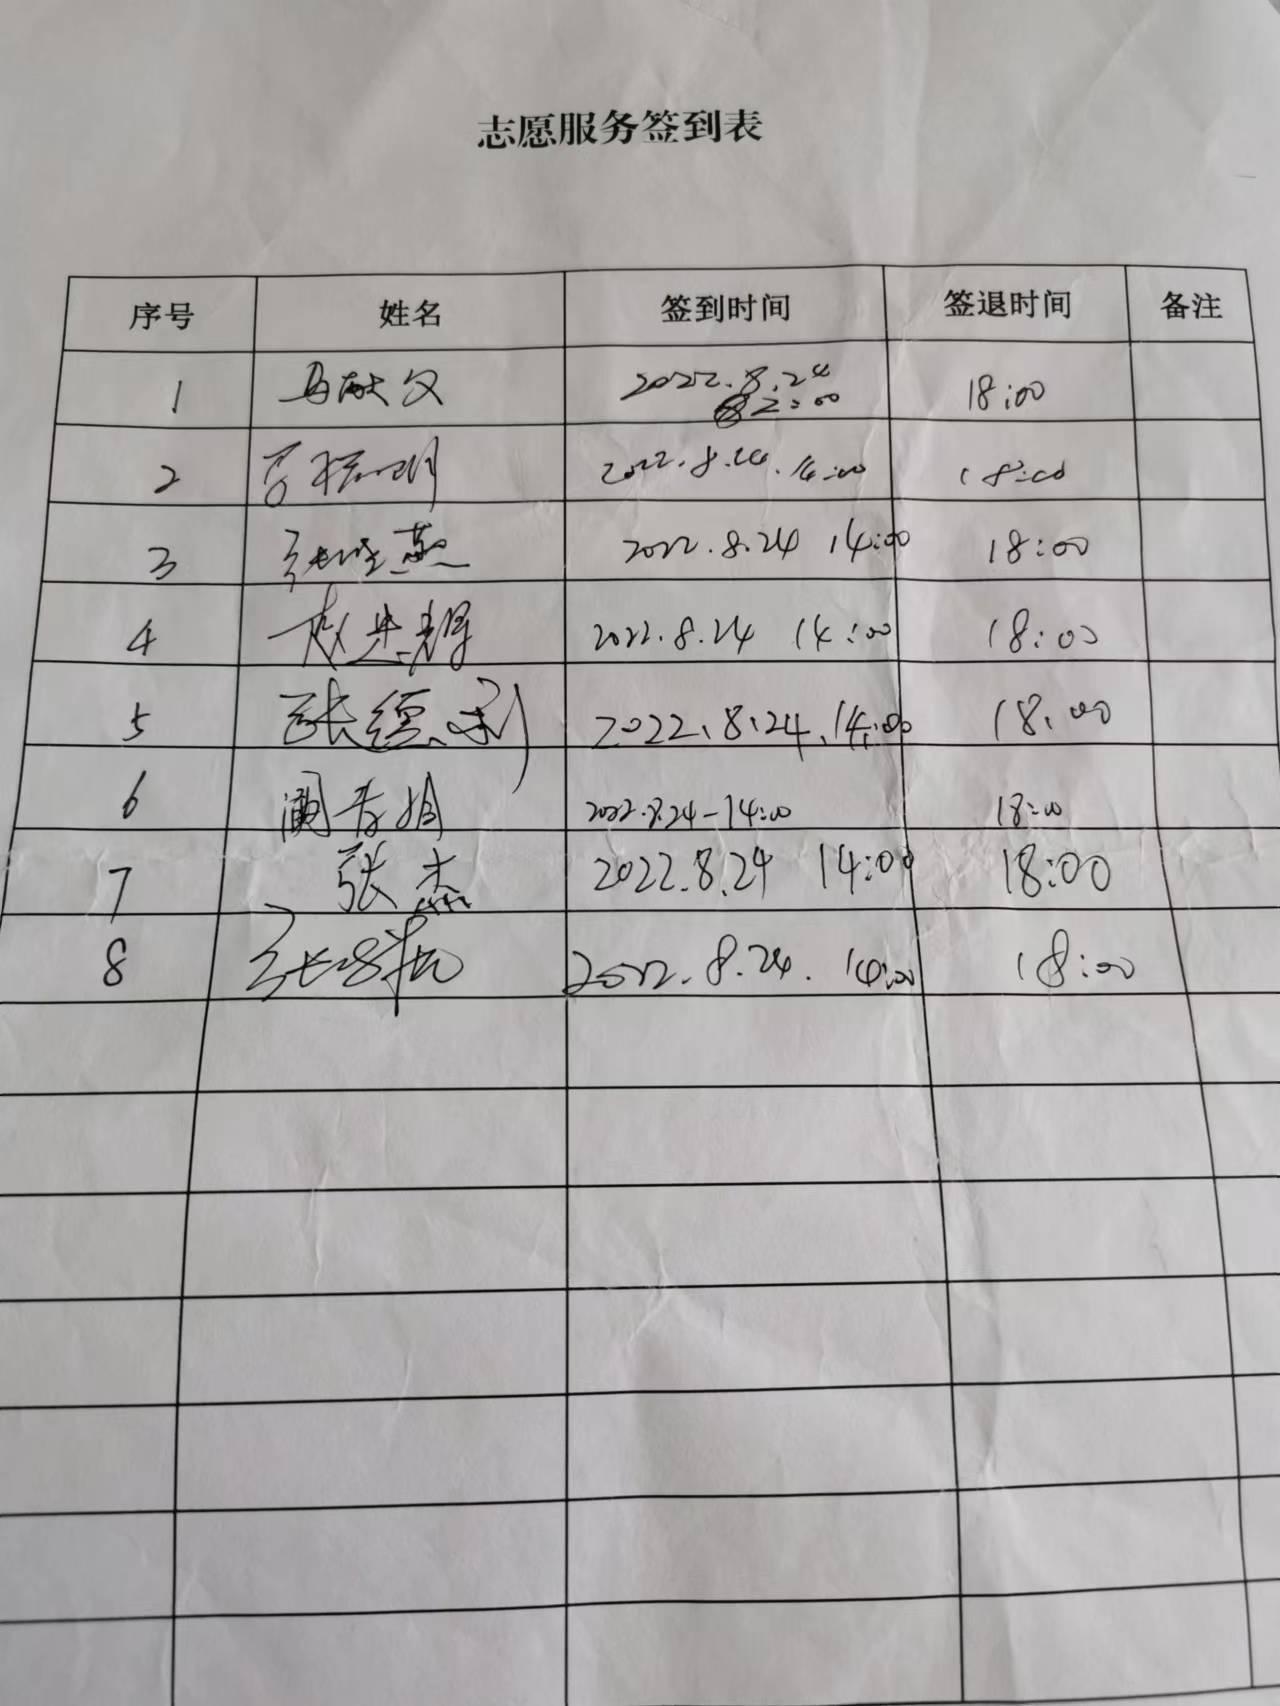 志愿服务签到表
序号 姓名 签到时间 签退时间 备注
1 马献文 2022.8.24 18:00
2:00
2 2022.8.24.14:00 18:00
3 2022.8.24 14:00 18:00
4 赵忠辉 2022.8.24 14:00 18:00
5 张德利 2022.8.24.14:00 18:00
6 2022.8.24-14:00 18:00
7 张杰 2022.8.24 14:00 18:00
8 2022.8.24. 14:00 18:00